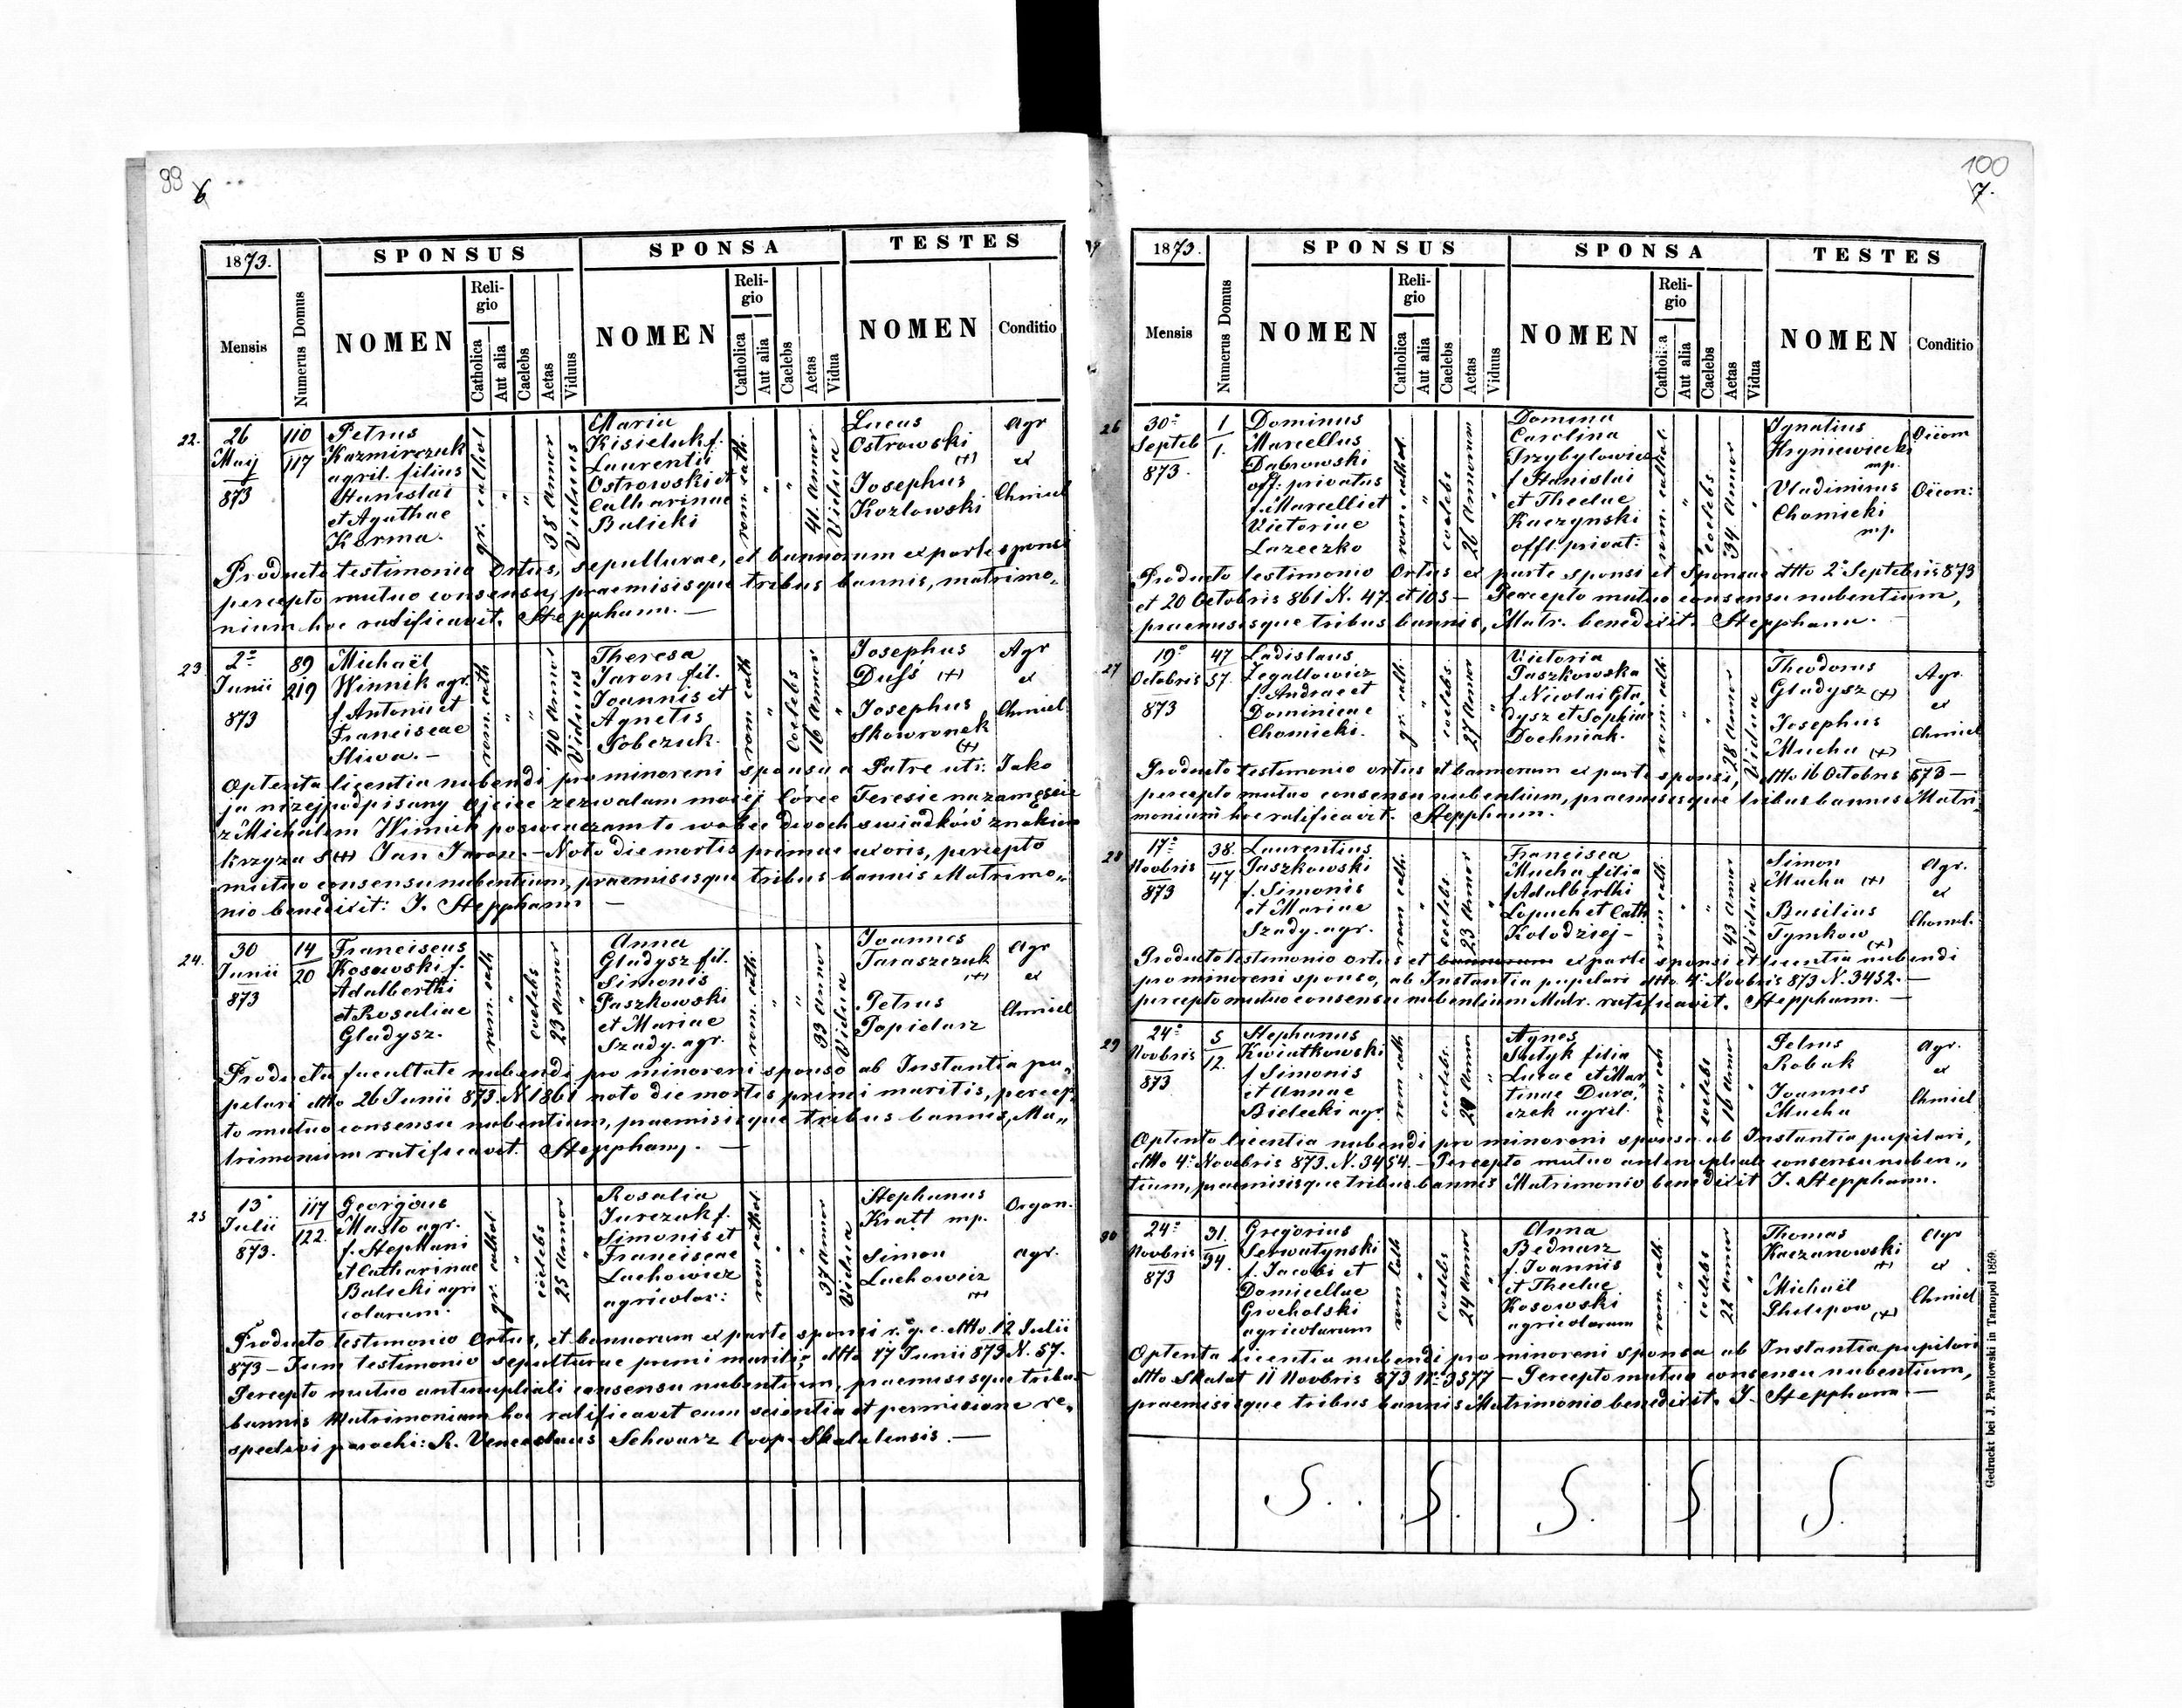 99
6
1873.
Mensis
Numerus Domus
SPONSUS
NOMEN
Religio
Catholica
Aut alia
Caelebs
Aetas
Viduus
SPONSA
NOMEN
Reli-
gio
Catholica
Aut alia
Caelebs
Aetas
Vidua
TESTES
NOMEN
Conditio
22.
26
Maij
873
110
117
Petrus
Kazmirczuk
agril. filius
Stanislai
et Agathae
Korma.
gr. cathol
"
"
38 annor
Viduus
Maria
Kisieluk f.
Laurentii
Ostrowski et
Catharinae
Balicki
rom. cath.
"
"
41 annor
Vidua
Lucas
Ostrowski
(+)
Josephus
Kozlowski
Agr
ex
Chmiel
Producto testimonio Ortus, sepulturae, et bannorum ex parte sponsi
percepto mutuo consensu, praemisisque tribus bannis, matrimo„
nium hoc ratificavit. Stepphann. —
23.
2
Junii
873
89
219
Michaël
Winnik agr.
f. Antonii et
Franciscae
Sliwa. —
rom. cath
"
"
40 annor
Viduus
Theresa
Jaron fil.
Joannis et
Agnetis
Sobczuk.
rom cath
"
Coelebs
16 annor
"
Josephus
Duss (+)
Josephus
Skowronek
(+)
Agr
ex
Chmiel
Optenta licentia nubendi pro minoreni sponsa a Patre uti: Jako
ja nizej podpisany Ojciec zezwalam mojej Córce Teresie na zamęscie
z Michalem Winnik poswiaczam to wobec dwoch swiadków znakiem
krzyza S (+) Jan Jaron. — Noto die mortis primae uxoris, percepto
mutuo consensu nubentium, praemisisque tribus bannis Matrimo„
nio benedixit: J. Stepphann —
24.
30
Junii
873
14
20
Franciscus
Kosowski f.
Adalberthi
et Rosaliae
Gladysz.
rom. cath
"
coelebs
23 annor
"
Anna
Gladysz fil.
Simonis
Paszkowski
et Mariae
Szady. agr.
rom. cath.
"
"
33 annor
Vidua
Joannes
Taraszczuk
(+)
Petrus
Papidarz
Agr
ex
Chmiel
Producta facultate nubendi pro minoreni sponso ab Instantia pu„
pelari dtto 26 Junii 873. N 1861 noto die mortis primi maritis, percep„
to mutuo consensu nubentium, praemisisque tribus bannis, Ma„
trimonium ratificavit. Stepphann. —
25
13
Julii
873.
117
122.
Georgius
Musto agr.
f. Stephani
et Catharinae
Balicki agri
colarum.
gr. cathol.
"
coelebs
25 annor
"
Rosalia
Jurczak f.
Simonis et
Franciscae
Lachowicz
agricolar:
rom cathol
"
"
37 annor
Vidua
Stephanus
Kratt mp.
Simon
Lachowicz
(+)
Organ.
agr.
Producto testimonio Ortus, et bannorum ex parte sponsi r. g. c. dtto 12 Julii
873 — Tum testimonio sepulturae primi mariti, dtto 17 Junii 873 N. 57.
Percepto mutuo antenuptiali consensu nubentium, praemisisque tribus
bannis Matrimonium hoc ratificavit cum scientia et permisione re„
spectivi parochi: R. Venceslaus Schwarz Coop. Skalatensis. —
100
7.
1873.
Mensis
Numerus Domus
SPONSUS
NOMEN
Reli-
gio
Catholica
Aut alia
Caelebs
Aetas
Viduus
SPONSA
NOMEN
Reli-
gio
Catholica
Aut alia
Caelebs
Aetas
Vidua
TESTES
NOMEN
Conditio
26
30
Septeb
873.
1
1.
Dominus
Marcellus
Dąbrowski
off. privatus
f. Marcelli et
Victoriae
Lazeczko
rom. cathol.
"
coelebs
26 annorum
"
Domina
Carolina
Przybylowicz
f Stanislai
et Theclae
Kaczynski
offl. privat:
rom. cathol.
"
coelebs
34 annor
"
Ignatius
Hryniewiecki
mp.
Vladimirus
Chomicki
mp.
Oicom
Oicon:
Producto testimonio Ortus ex parte sponsi et Sponsae dtto 2 Septebris 873
et 20 Octobris 861 N. 47. et 103 — Percepto mutuo consensu nubentium,
praemisisque tribus bannis, Matr. benedixit. Stepphann. —
27
19
Octobris
873
47
57.
Ladislaus
Zegallowicz
f. Andrae et
Dominicae
Chomicki.
gr. cath.
"
coelebs.
27 annor
"
Victoria
Paszkowska
f. Nicolai Gla„
dysz et Sophiae
Dochniak.
rom. cath.
"
"
28 annor
Vidua
Theodorus
Gladysz (+)
Josephus
Mucha (+)
Agr.
ex
Chmiel
Producto testimonio ortus et bannorum ex parte sponsi, dtto 16 Octobris 873 —
percepto mutuo consensu nubentium, praemisisque tribus bannis Matri„
monium hoc ratificavit. Stepphann.
28
17
Novbris
873
38.
47
Laurentius
Paszkowski
f. Simonis
et Mariae
Szady. agr.
rom cath.
"
coelebs.
23 annor
"
Francisca
Mucha filia
Adalberthi
Lopuch et Cath
Kolodziej —
rom cath.
"
"
43 annor
Vidua
Simon
Mucha (+)
Basilius
Tymkow
(+)
Agr.
ex
Chmiel.
Producto testimonio ortus et bannorum ex parte sponsi et licentia nubendi
pro minoreni sponso, ab Instantia pupelari dtto 4 Novbris 873 N. 3452. —
percepto mutuo consensu nubentium Matr. ratificavit. Stepphann. —
29
24
Novbris
873
5
12.
Stephanus
Kwiatkowski
f Simonis
et Annae
Bielecki agr
rom cath
"
coelebs.
29 annor
"
Agnes
Satyk filia
Lucae et Mar„
tinae Dura„
czek agril.
rom cath
"
coelebs
16 annor
"
Petrus
Robak
Joannes
Mucha
Agr.
ex
Chmiel
Optento licentia nubendi pro minoreni sponsa ab Instantia pupilari,
dtto 4 Novebris 873. N. 3454. — Percepto mutuo antenuptiali consensu nuben„
tium, praemisisque tribus bannis Matrimonio benedixit J. Stepphann.
30
24
Novbris
873
31.
94.
Gregorius
Serwatynski
f. Jacobi et
Domicellae
Grocholski
agricolarum
rom Cath
"
coelebs
24 annor
"
Anna
Bednarz
f. Joannis
et Theclae
Kosowski
agricolarum
rom. cath.
"
coelebs
22 annor
"
Thomas
Kaczanowski
(+)
Michaël
Philipow (+)
Agr
ex
Chmiel
Optenta licentia nubendi pro minoreni sponsa ab Instantia pupilari
dtto Skalat 11 Novbris 873 N 3577 — Percepto mutuo consensu nubentium,
praemisisque tribus bannis Matrimonio benedixit. J. Stepphann —
S. . S. S. S S.
Gedruckt bei J. Pawlowski in Tarnopol 1869.